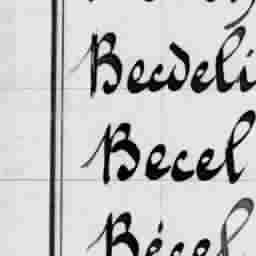 Becdeli
Becel
Bécel